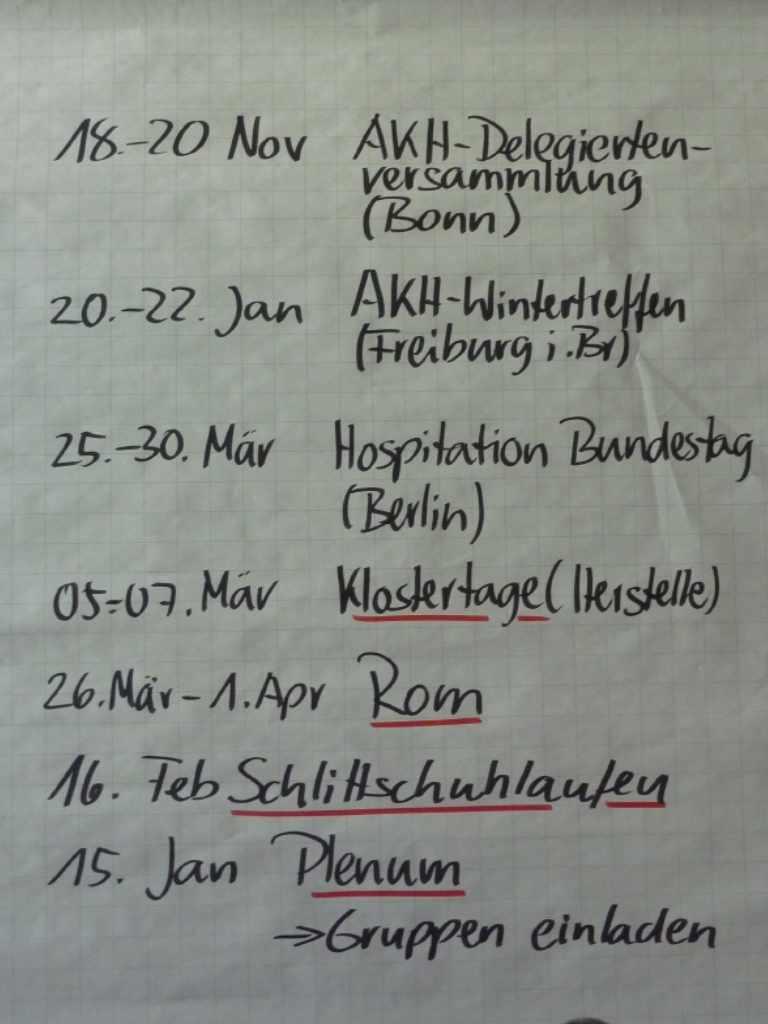 18.-20 Nov AKH-Delegierten-
versammlung
(Bonn)
20.-22. Jan AKH-Wintertreffen
(Freiburg i.Br)
25.-30. Mär Hospitation Bundestag
(Berlin)
05.-07. Mär Klostertage (Herstelle)
26. Mär - 1. Apr Rom
16. Feb Schlittschuhlaufen
15. Jan Plenum
→ Gruppen einladen